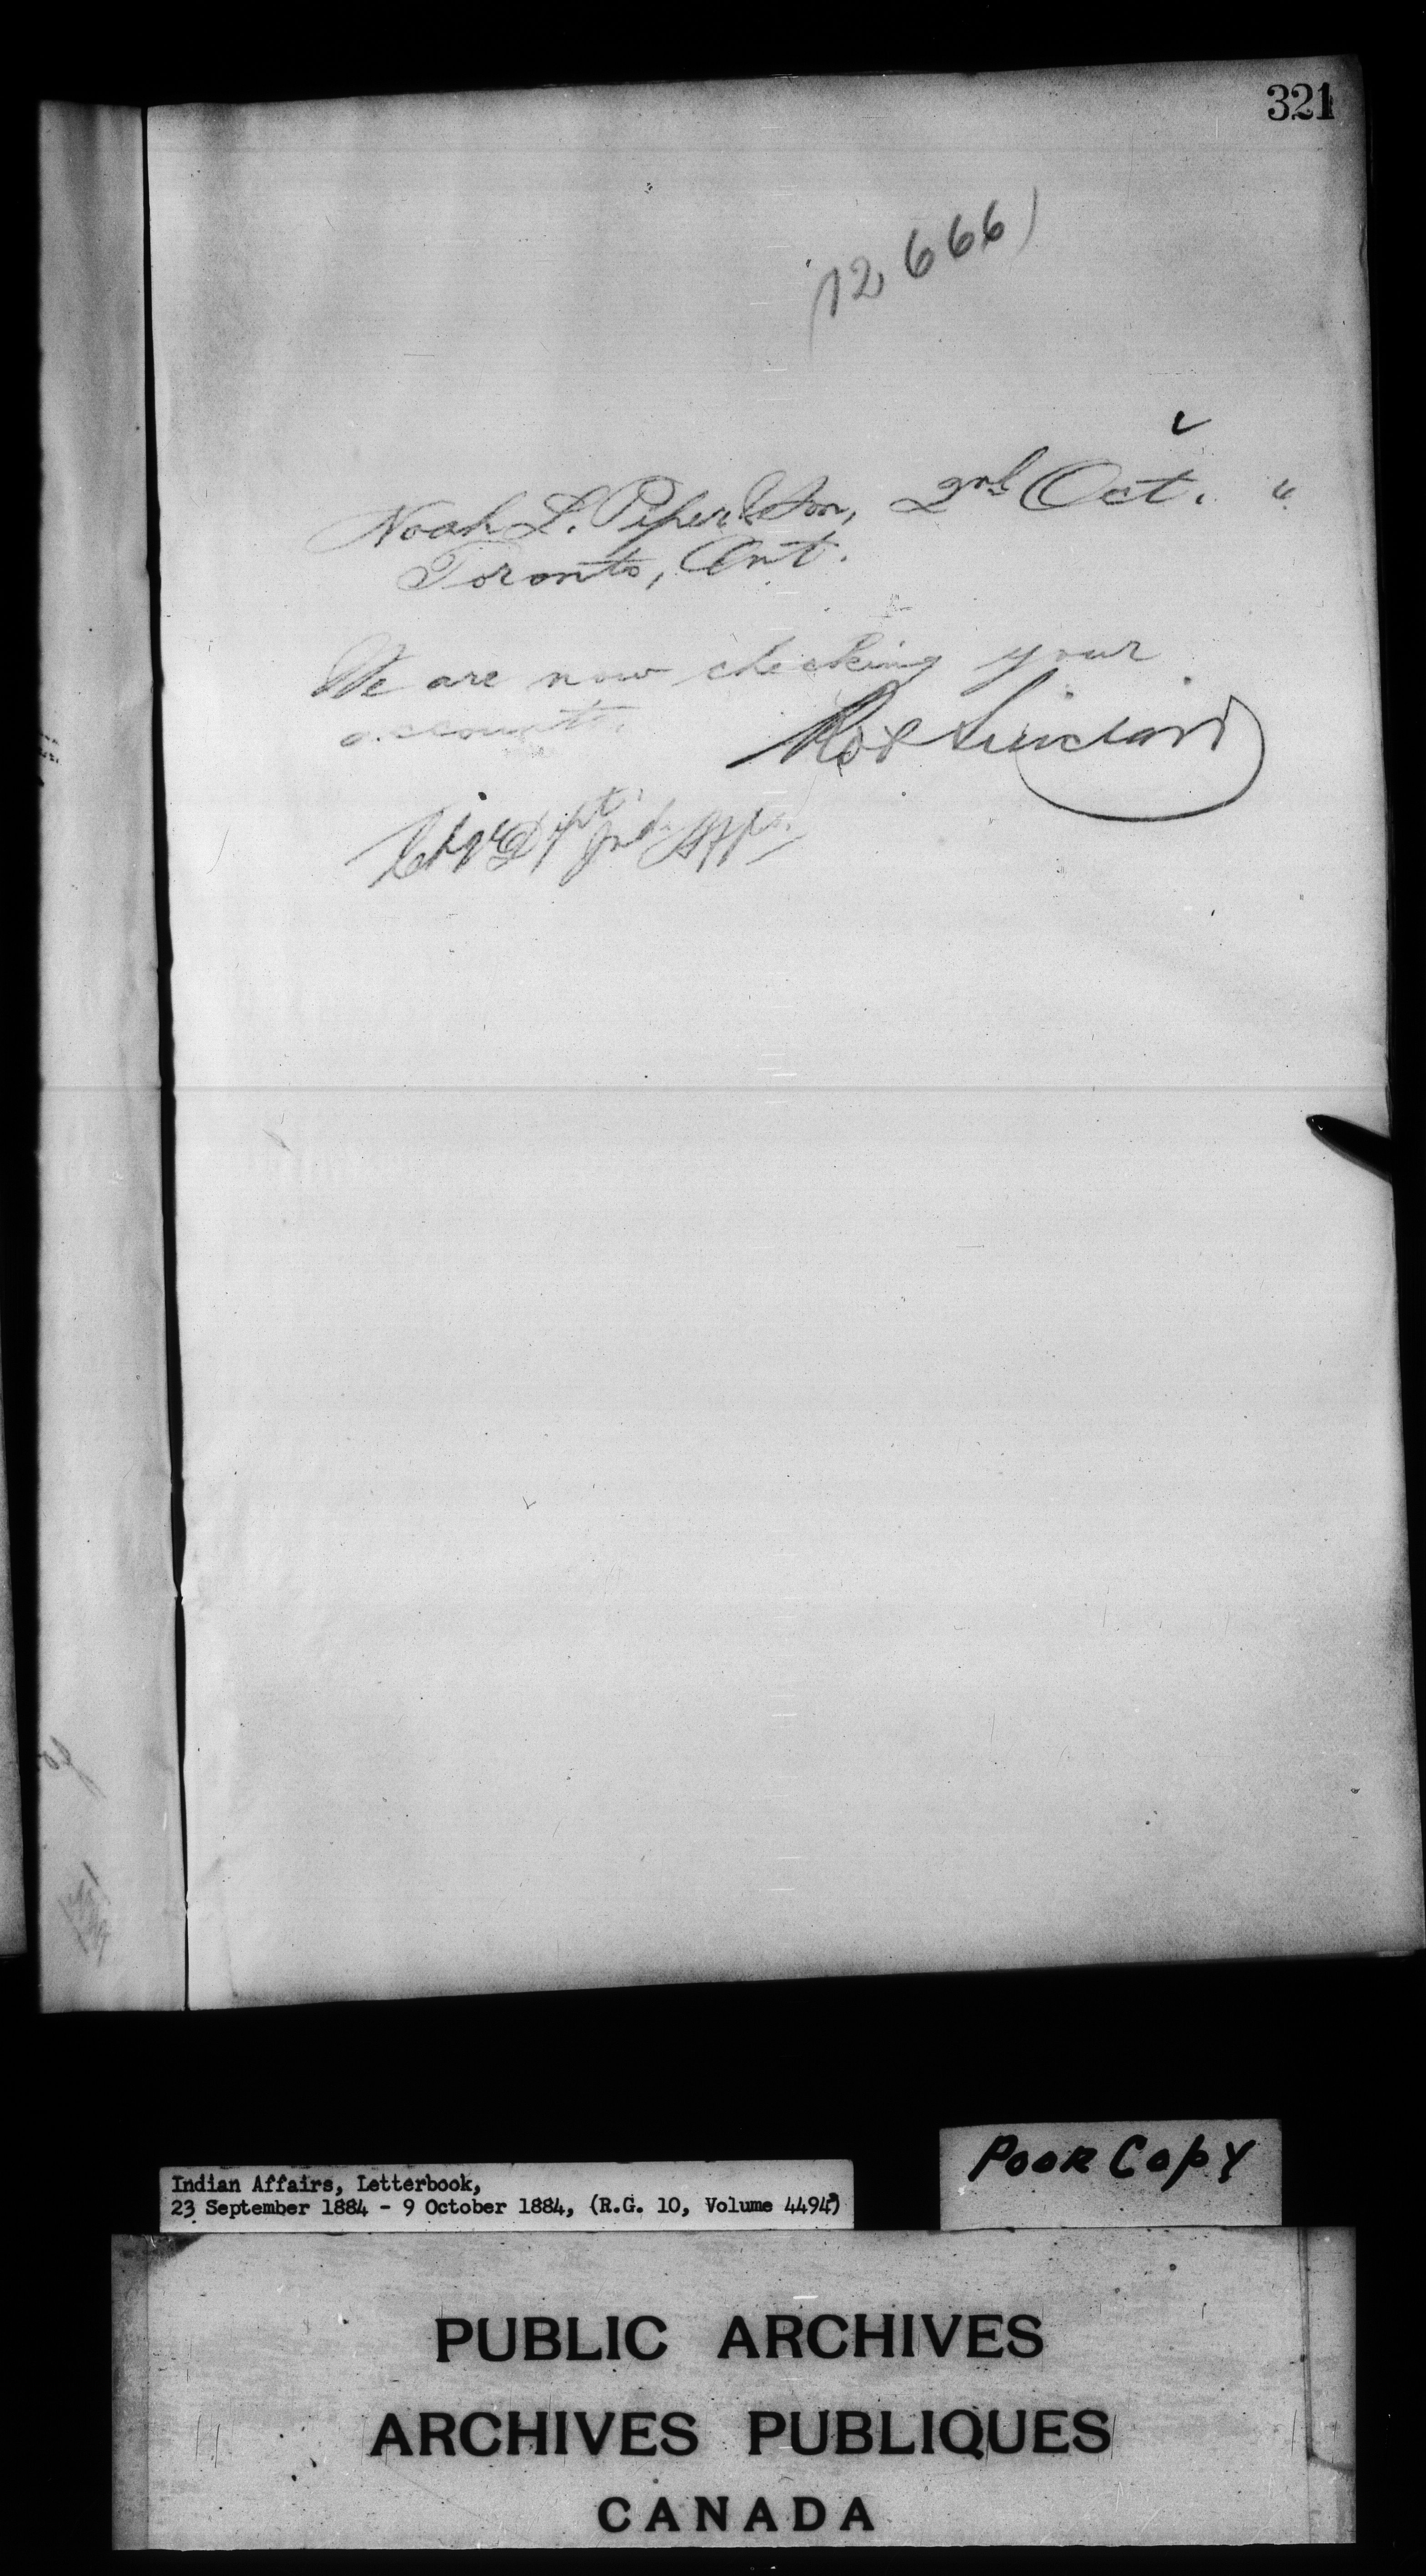 321
(12,666)
Noah L. Piper & Son, 2nd Oct. "
Toronto, Ont.
We are now checking your
accounts.
Robt Sinclair
Chge Dept Ind. Affrs.
Indian Affairs, Letterbook,
23 September 1884 - 9 October 1884, (R.G. 10, Volume 4494)
POOR COPY
PUBLIC ARCHIVES
ARCHIVES PUBLIQUES
CANADA